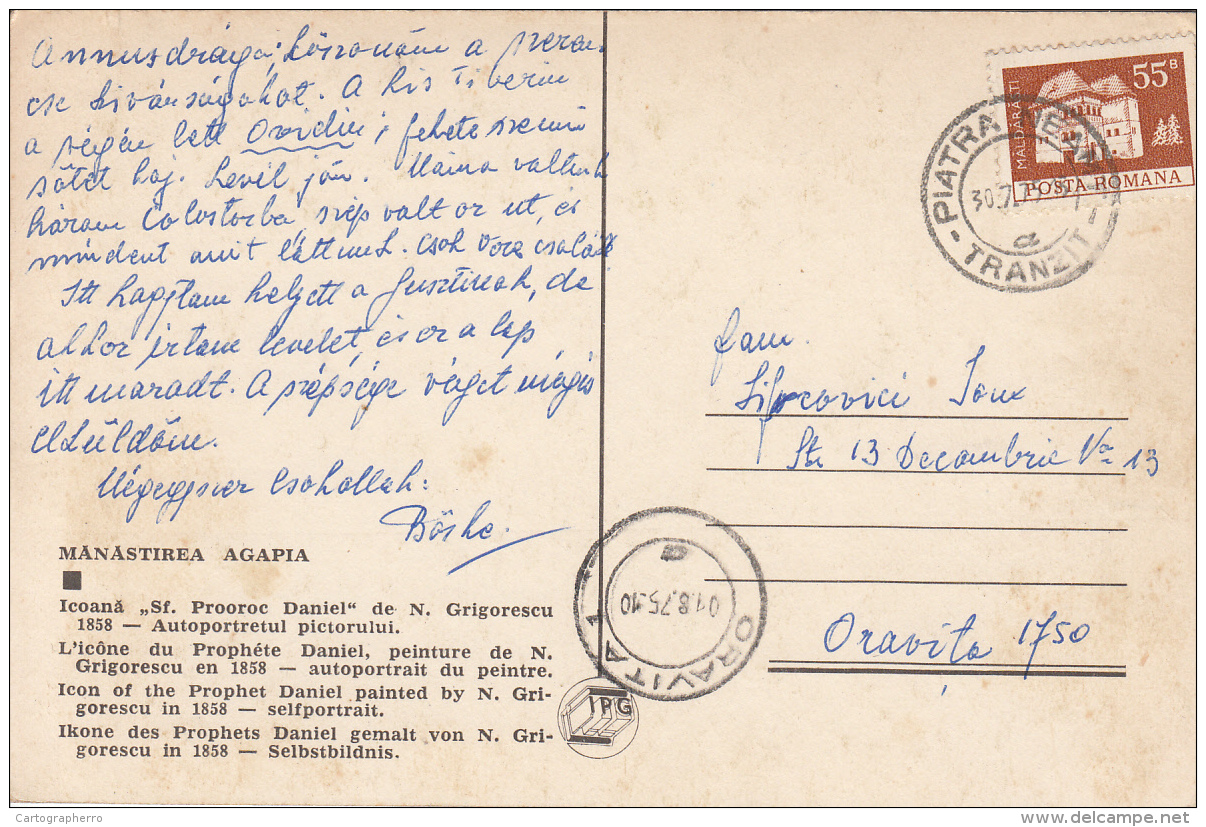 Annusdrága, köszönöm a szeren-
cse kivánságokat. A kis Tiberiu
a végén lett Ovidiu; fekete szemű
sötét haj. Levél jön. Maina voltunk
három Colostorba, szép volt az út, és
mindent amit láttunk. Csok Vora család
Itt hagytam helyett a Gusztinak, de
akkor irtam levelet, és ez a lap
itt maradt. A szépsége végett mégis
elküldöm.
Mégegyszer csokollak:
Böske.
MĂNĂSTIREA AGAPIA
Icoană „Sf. Prooroc Daniel“ de N. Grigorescu
1858 — Autoportretul pictorului.
L'icône du Prophéte Daniel, peinture de N.
Grigorescu en 1858 — autoportrait du peintre.
Icon of the Prophet Daniel painted by N. Gri-
gorescu in 1858 — selfportrait.
Ikone des Prophets Daniel gemalt von N. Gri-
gorescu in 1858 — Selbstbildnis.
IPG
ORAVITA 1
01.8.75.10
55B
MALDARASTI
POSTA ROMANA
PIATRA NEAMT
30.7.75
a
TRANZIT
Fam.
Str 13 Decembrie No 13
Oravița 1750
Cartographerro
delcampe.net